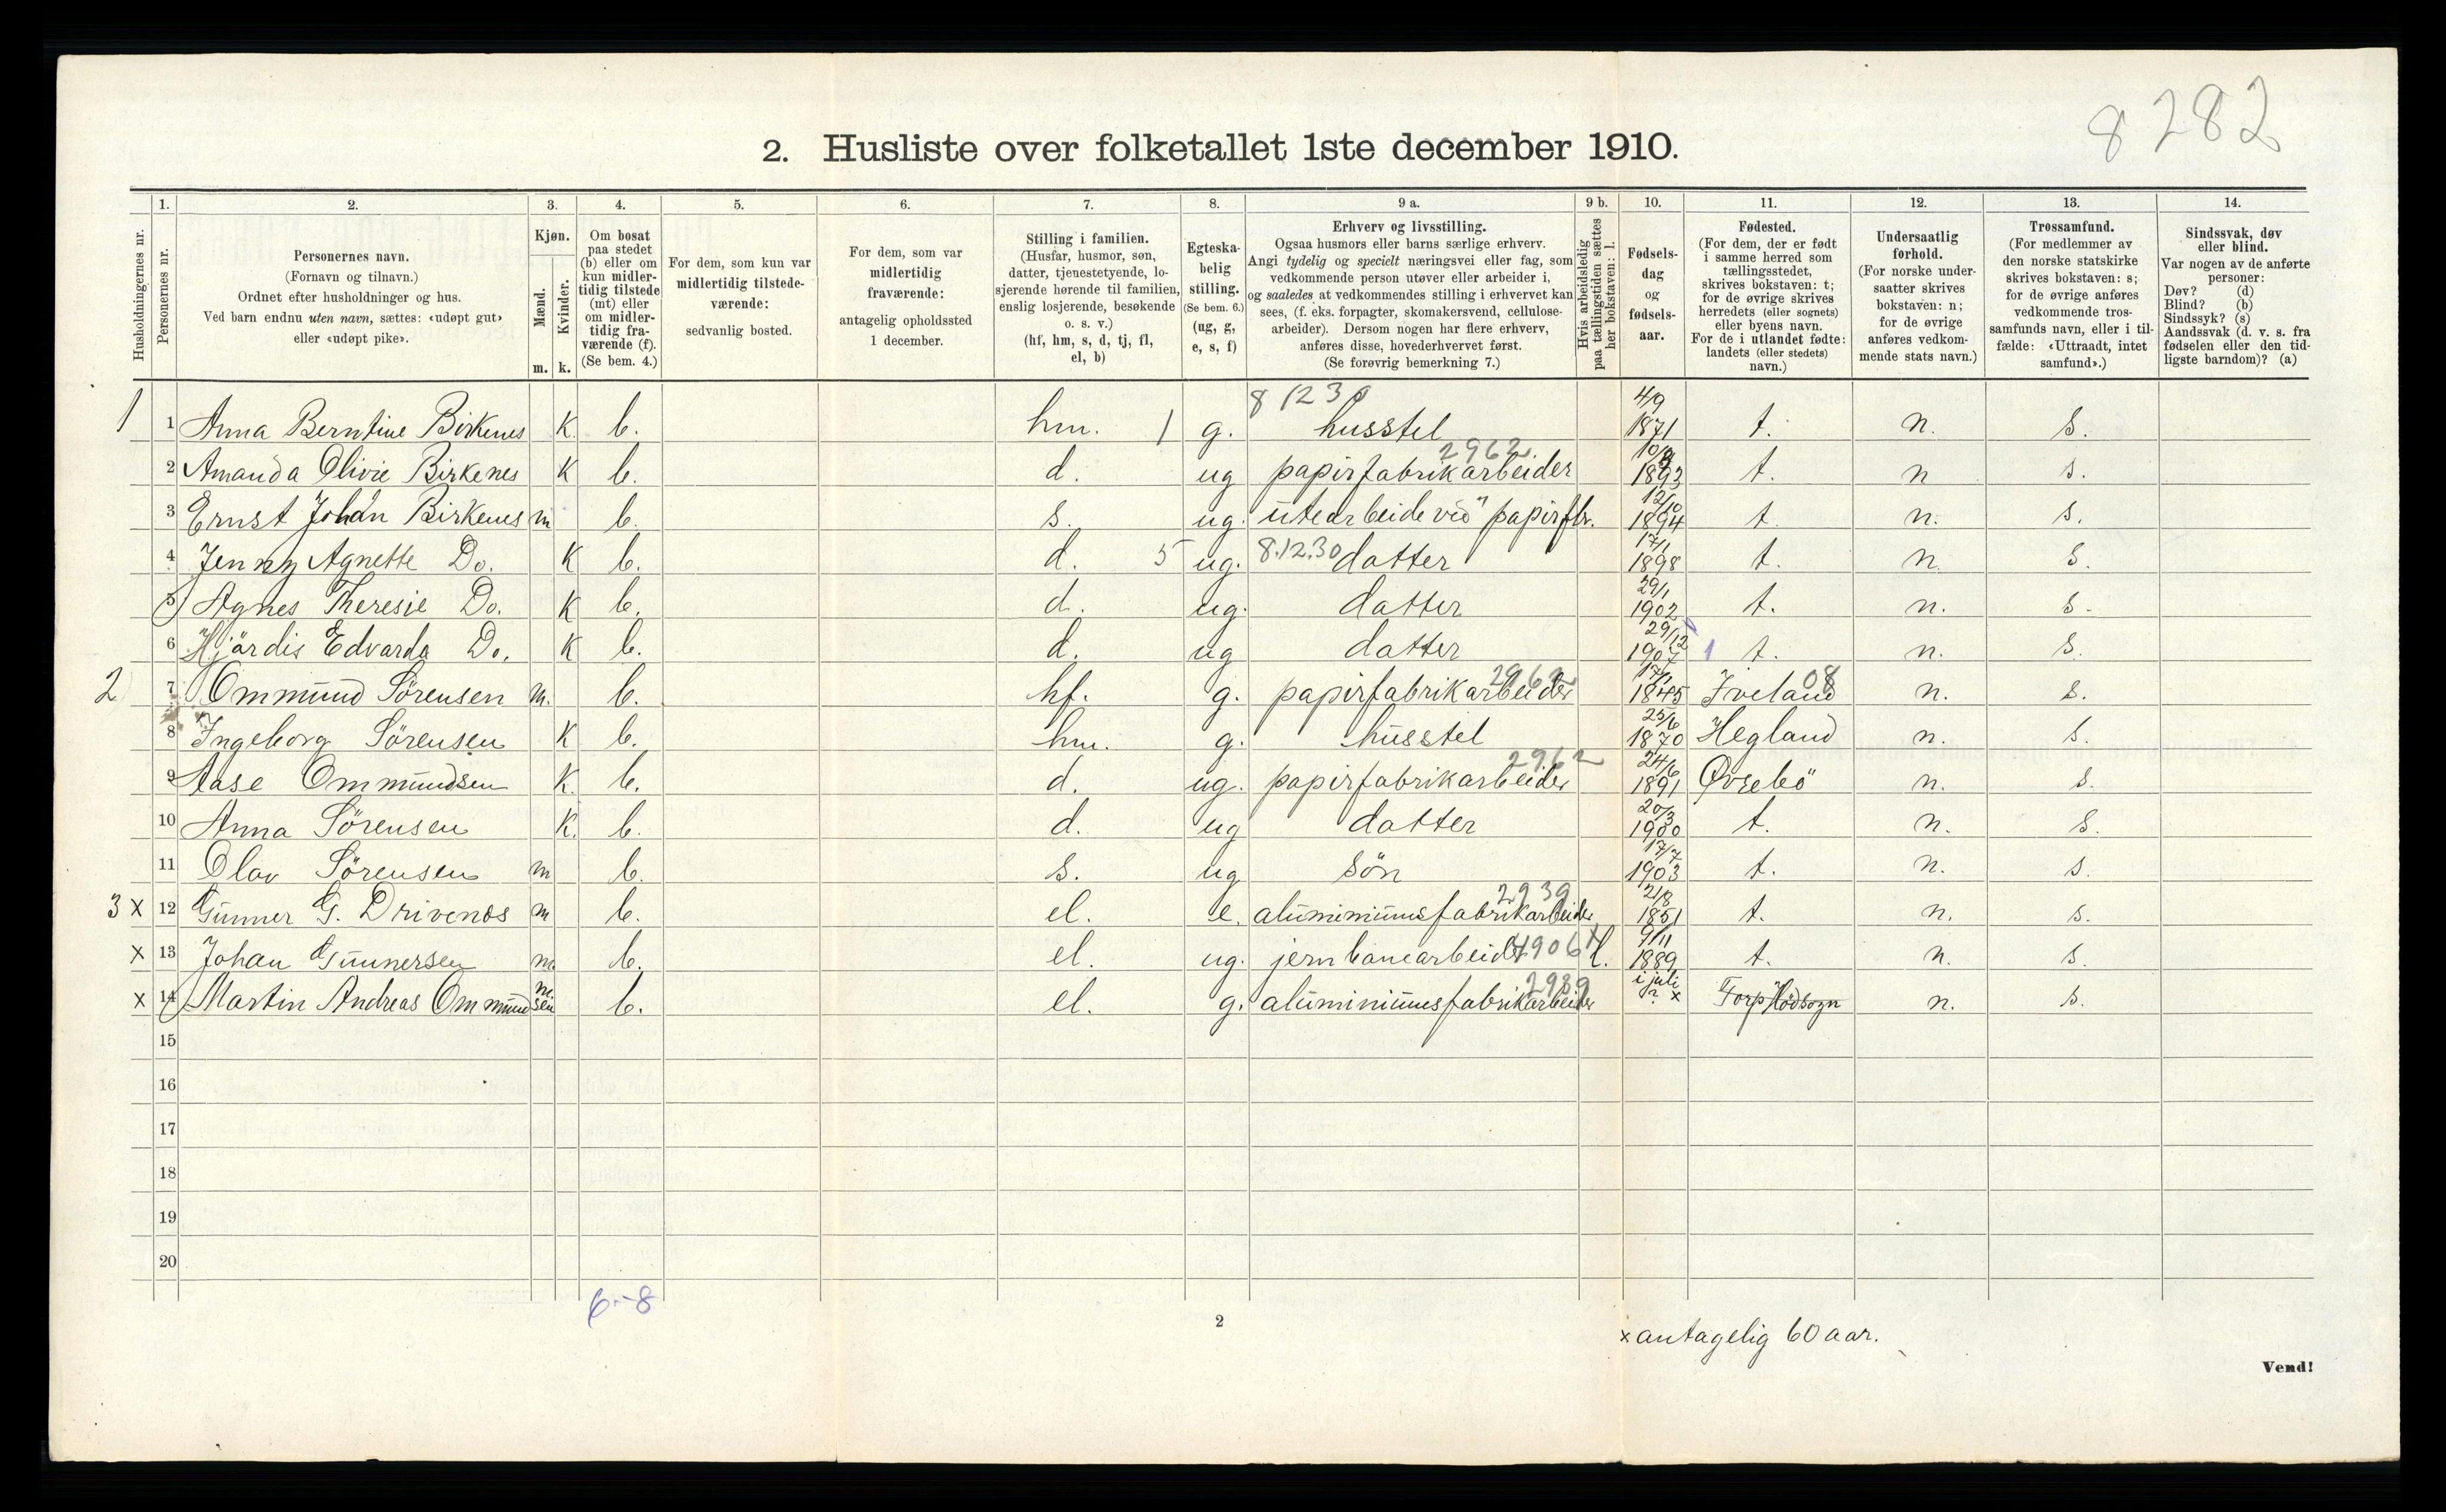 8282
2. Husliste over folketallet 1ste december 1910.
Husholdningernes nr.
1. Personernes nr.
2. Personernes navn. (Fornavn og tilnavn.) Ordnet efter husholdninger og hus. Ved barn endnu uten navn, sættes: «udøpt gut» eller «udøpt pike».
3. Kjøn. Mænd. m. Kvinder. k.
4. Om bosat paa stedet (b) eller om kun midlertidig tilstede (mt) eller om midlertidig fraværende (f). (Se bem. 4.)
5. For dem, som kun var midlertidig tilstedeværende: sedvanlig bosted.
6. For dem, som var midlertidig fraværende: antagelig opholdssted 1 december.
7. Stilling i familien. (Husfar, husmor, søn, datter, tjenestetyende, losjerende hørende til familien, enslig losjerende, besøkende o. s. v.) (hf, hm, s, d, tj, fl, el, b)
8. Egteskabelig stilling. (Se bem. 6.) (ug, g, e, s, f)
9 a. Erhverv og livsstilling. Ogsaa husmors eller barns særlige erhverv. Angi tydelig og specielt næringsvei eller fag, som vedkommende person utøver eller arbeider i, og saaledes at vedkommendes stilling i erhvervet kan sees, (f. eks. forpagter, skomakersvend, cellulosearbeider). Dersom nogen har flere erhverv, anføres disse, hovederhvervet først. (Se forøvrig bemerkning 7.)
9 b. Hvis arbeidsledig paa tællingstiden sættes her bokstaven: l.
10. Fødselsdag og fødselsaar.
11. Fødested. (For dem, der er født i samme herred som tællingsstedet, skrives bokstaven: t; for de øvrige skrives herredets (eller sognets) eller byens navn. For de i utlandet fødte: landets (eller stedets) navn.)
12. Undersaatlig forhold. (For norske undersaatter skrives bokstaven: n; for de øvrige anføres vedkommende stats navn.)
13. Trossamfund. (For medlemmer av den norske statskirke skrives bokstaven: s; for de øvrige anføres vedkommende trossamfunds navn, eller i tilfælde: «Uttraadt, intet samfund».)
14. Sindssvak, døv eller blind. Var nogen av de anførte personer: Døv? (d) Blind? (b) Sindssyk? (s) Aandssvak (d. v. s. fra fødselen eller den tidligste barndom)? (a)
1 1 Anna Berntine Birkenes K. b. hm. 1 g. husstel 4/9 1871 t. n. s.
2 Amanda Olivie Birkenes K b. d. ug papirfabrikarbeider 2962 1893 t. n s.
3 Ernst Johan Birkenes m b. s. ug. utearbeide ved papirfbr. 12/10 1894 t. n. s.
4 Jenny Agnette Do. K b. d. 5 ug. 8.12.30 datter 17/1 1898 t. n. s.
5 Agnes Theresie Do. K b. d. ug. datter 29/1 1902 t. n. s.
6 Hjördis Edvarda Do. K b. d. ug datter 29/12 1907 1 t. n. s.
2 7 Ommund Sörensen m. b. hf. g. papirfabrikarbeider 2962 17/1 1845 Iveland 08 n. s.
8 Ingeborg Sörensen K b. hm. g. husstel 25/6 1870 Hegland n. s.
9 Aase Ommundsen K. b. d. ug. papirfabrikarbeider 2962 24/6 1891 Øvrebö n. s.
10 Anna Sörensen K. b. d. ug datter 20/3 1900 t. n. s.
11 Olav Sörensen m b. s. ug sön 17/7 1903 t. n. s.
3 x 12 Gunner G. Drivenes m b. el. e. aluminiumsfabrikarbeider 2939 2/8 1851 t. n. s.
x 13 Johan Gunnersen m. b. el. ug. jernbanearbeider 4906 l. 9/11 1889 t. n. s.
x 14 Martin Andreas Ommundsen m. b. el. g. aluminiumsfabrikarbeider i juli ? x n. s.
15
16
17
18
19
20
6-8
2
x antagelig 60 aar.
Vend!